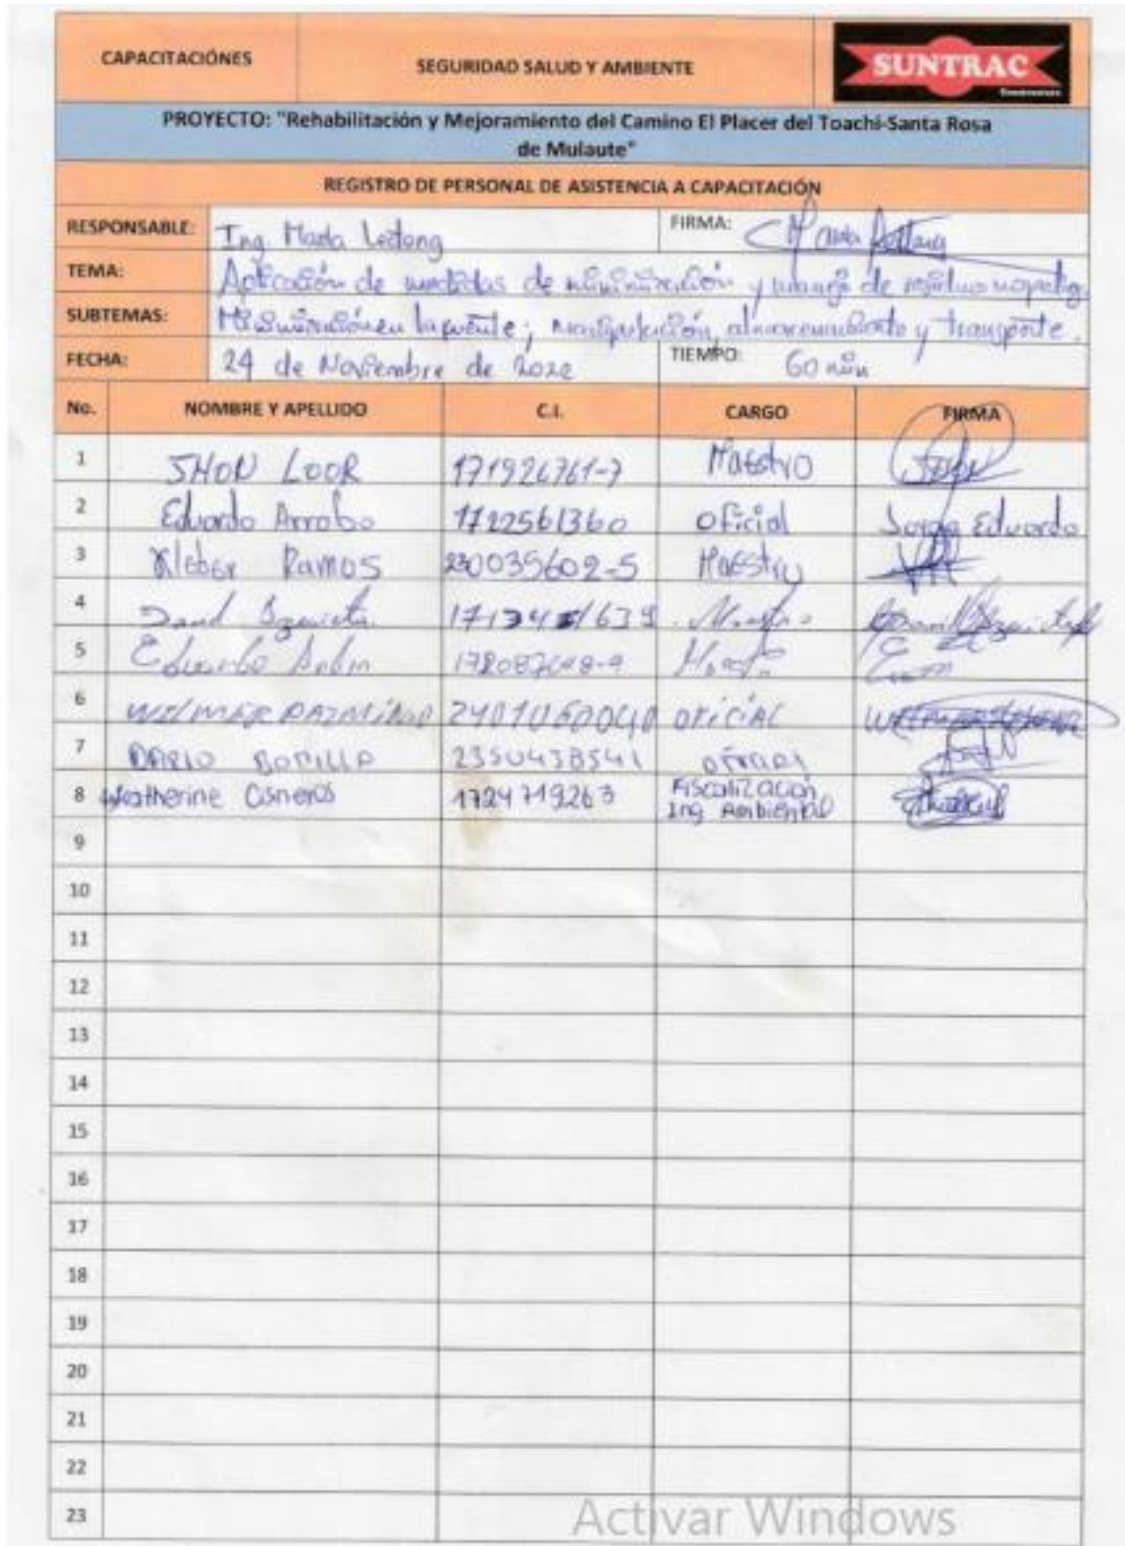 CAPACITACIÓNES
SEGURIDAD SALUD Y AMBIENTE
SUNTRAC
PROYECTO: "Rehabilitación y Mejoramiento del Camino El Placer del Toachi-Santa Rosa
de Mulaute"
REGISTRO DE PERSONAL DE ASISTENCIA A CAPACITACIÓN
RESPONSABLE: Ing. María FIRMA:
TEMA: Aplicación de medidas de minimización y manejo de residuos
SUBTEMAS: Minimización en la fuente; manipulación, almacenamiento y transporte.
FECHA: 24 de Noviembre de 2022 TIEMPO: 60 min
No. NOMBRE Y APELLIDO C.I. CARGO FIRMA
1 JHON LOOR 171926761-7 Maestro
2 Eduardo Arrobo 1722561360 oficial Jorge Eduardo
3 Kleber Ramos 230035602-5 Maestro
4 David
5 Eduardo
6 WILMER PAZMIÑO oficiAL
7 DARIO BONILLA 2350438541
8 Katherine Cisneros 1724719263 Fiscalización
Ing Ambiental
9
10
11
12
13
14
15
16
17
18
19
20
21
22
23
Activar Windows